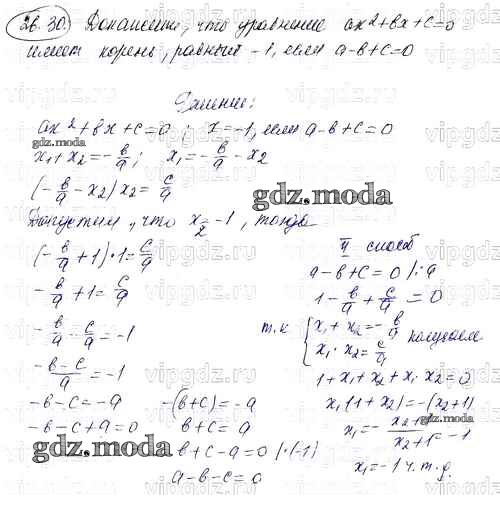 26.30. Доказать, что уравнение ax²+bx+c=0
имеет корень, равный -1, если a-b+c=0
Решение:
ax²+bx+c=0; x=-1, если a-b+c=0
x₁+x₂=-b/a; x₁=-b/a-x₂
(-b/a-x₂)x₂=c/a
Допустим, что x₂=-1, тогда
(-b/a+1)·1=c/a
-b/a+1=c/a
-b/a-c/a=-1
(-b-c)/a=-1
-b-c=-a -(b+c)=-a
-b-c+a=0 b+c=a
b+c-a=0 |·(-1)
a-b-c=0
II способ
a-b+c=0 |:a
1-b/a+c/a=0
т.к { x₁+x₂=-b/a
x₁·x₂=c/a получаем
1+x₁+x₂+x₁·x₂=0
x₁(1+x₂)=-(x₂+1)
x₁=-(x₂+1)/(x₂+1)=-1
x₁=-1 ч.т.д.
gdz.moda
gdz.moda
gdz.moda
gdz.moda
gdz.moda
vipgdz.ru